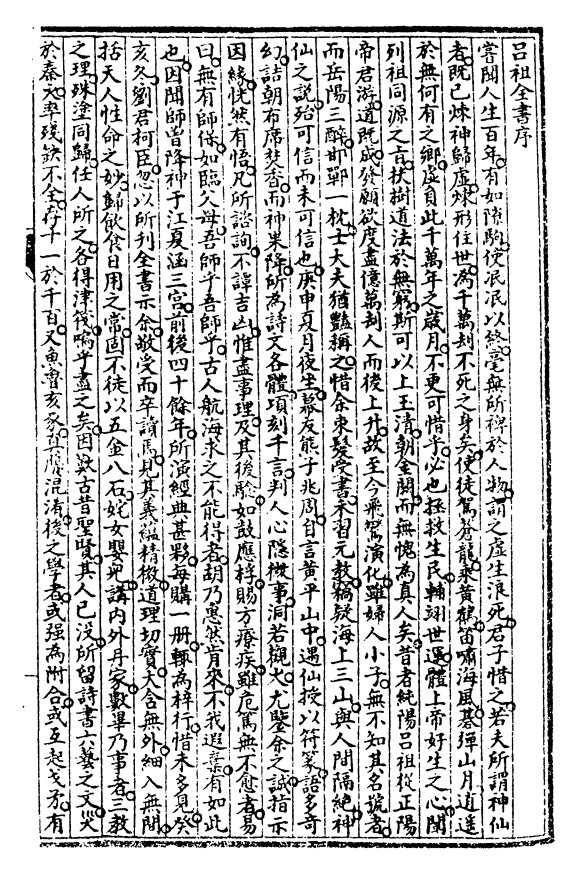 呂祖全書序
嘗聞人生百年有如隙駒使泯泯以終毫無所裨於人物謂之虛生浪死君子惜之若夫所謂神仙
者既已煉神歸虛煉形住世為千萬刼不死之身矣使徒駕蒼龍乘黃鶴笛嘯海風碁彈山月逍遥
於無何有之鄉虛負此千萬年之歲月不更可惜乎必也拯救生民輔翊世運體上帝好生之心闡
列祖同源之旨扶樹道法於無窮斯可以上玉清朝金闕而無愧為真人矣昔者純陽呂祖從正陽
帝君游道既成發願欲度盡億萬刼人而後上升故至今飛鸞演化雖婦人小子無不知其名號者
而岳陽三醉邯鄲一枕士大夫猶豔稱之惜余束髮受書未習元教竊疑海上三山與人間隔絕神
仙之說殆可信而未可信也庚申夏月夜坐幕友熊子兆周自言黃平山中遇仙授以符篆語多奇
幻詰朝布席焚香而神果降所為詩文各體頃刻千言判人心隱微事洞若觀火尤鑒余之誠指示
因緣恍然有悟凡所諮詢不諱吉凶惟盡事理及其後驗如鼓應桴賜方療疾雖危篤無不愈者易
曰無有師保如臨父母吾師乎吾師乎古人航海求之不能得者胡乃惠然肯來不我遐棄有如此
也因聞師曾降神于江夏涵三宮前後四十餘年所演經典甚夥每購一册輙為梓行惜未多見癸
亥冬劉君柯臣忽以所刊全書示余敬受而卒讀焉見其義蘊精微道理切實大含無外細入無間
括天人性命之妙歸飲食日用之常固不徒以五金八石姹女嬰兒講内外丹家數畢乃事者三教
之理殊塗同歸任人所之各得津筏嗚乎盡之矣因歎古昔聖賢其人已没所留詩書六藝之文災
於秦火率殘缺不全存十一於千百又魚魯亥豕真贗混淆後之學者或强為附合或互起戈矛有